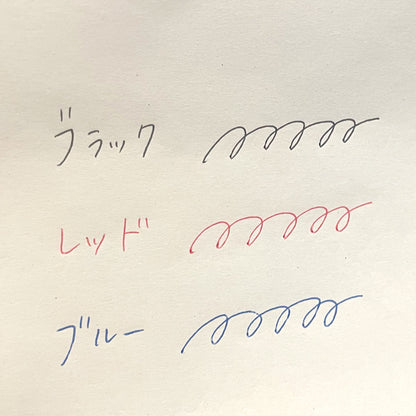 ブラック
レッド
ブルー